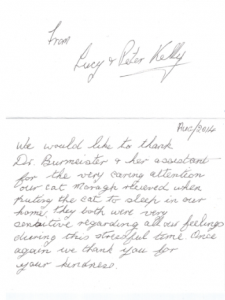 From
Lucy & Peter Kelly
Aug/2014
We would like to thank
Dr. Burmeister & her assistant
for the very caring attention
our cat Moragh recieved when
puting the cat to sleep in our
home, they both were very
sensative regarding all our feelings
during this stressful time Once
again we thank you for
your kindness.